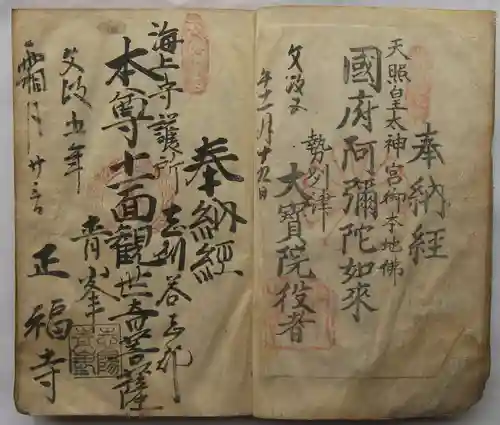 奉納経
天照皇太神宮御本地佛
國府阿彌陀如來
勢州津
大寶院役者
文政五
年十一月十九日
奉納經
海上守護所
本尊十一面觀世音菩薩
青峯
正福寺
文政五年
霜月廿三日